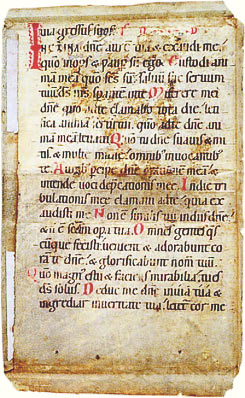 me
et exaudi me.
pauper sum ego. Custodi ani
mā meā qm̄ scs̄ sum. saluū fac seruum
tuū ds̄ ms̄ sperantē in te. Miserere mei
dn̄e quō ad te clamaui tota die. leti
fica animā serui tui. quō ad te dn̄e ani
mā meā leuaui. Quō tu dn̄e suauis & mi
tis. & multe mīe omnib; inuocantib;
te. Aurib; percipe dn̄e orationē meā &
intende uoci dep̄cationis mee. In die tri
bulationis mee clamaui ad te. quia ex
audisti me. Non ē similis tui in diis dn̄e.
& n̄ ē scdm̄ opa tua. Omnes gentes qs
cūque fecisti. uenient & adorabunt co
rā te dn̄e. & glorificabunt nom̄ tuū.
Quō magn' es tu & faciēs mirabilia. tu es
ds̄ solus. Deduc me dn̄e in uia tua &
ingrediar in ueritate tua. letet' cor me